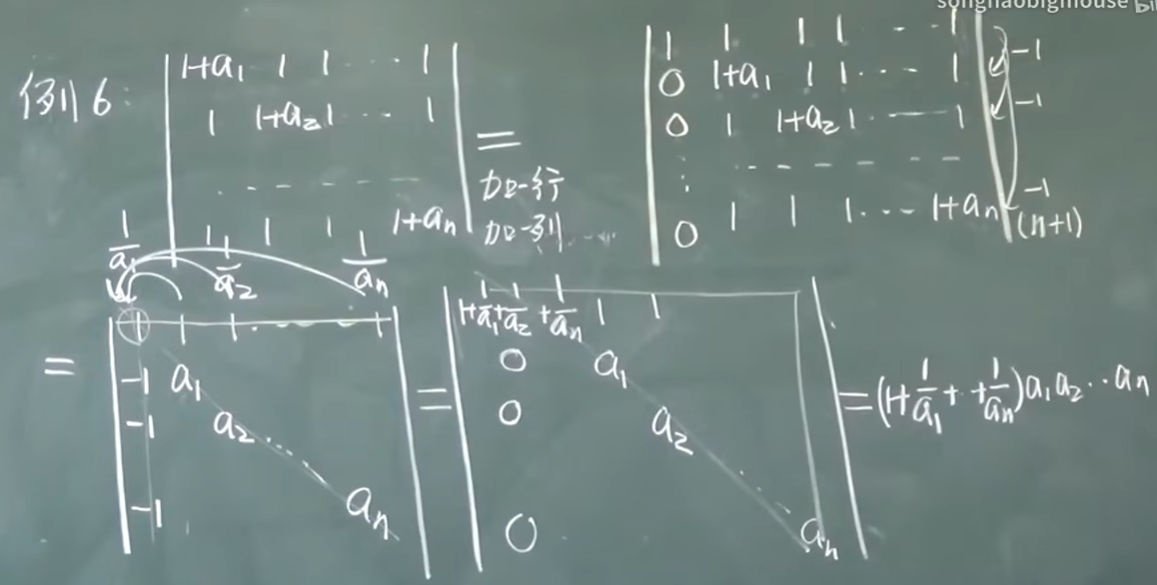 songhaobigmouse bil
例6:
| 1+a₁ 1 1 ⋯ 1 |
| 1 1+a₂ 1 ⋯ 1 |
| - - - - - - |
| 1 1 1 1+aₙ |
=
加一行
加一列
| 1 1 1 1 - - 1 | -1
| 0 1+a₁ 1 1 ⋯ 1 | -1
| 0 1 1+a₂ 1 ⋯ 1 |
| ⋮ - - - - - - |
| 0 1 1 1 ⋯ 1+aₙ | -1
(n+1)
1/a₁ 1/a₂ 1/aₙ
=
| 1 1 1 ⋯ 1 |
| -1 a₁ |
| -1 a₂ ⋯ |
| -1 aₙ |
=
| 1+1/a₁+1/a₂ +1/aₙ 1 1 |
| 0 a₁ |
| 0 a₂ ⋯ |
| 0 aₙ |
=(1+1/a₁+ +1/aₙ)a₁a₂⋯aₙ